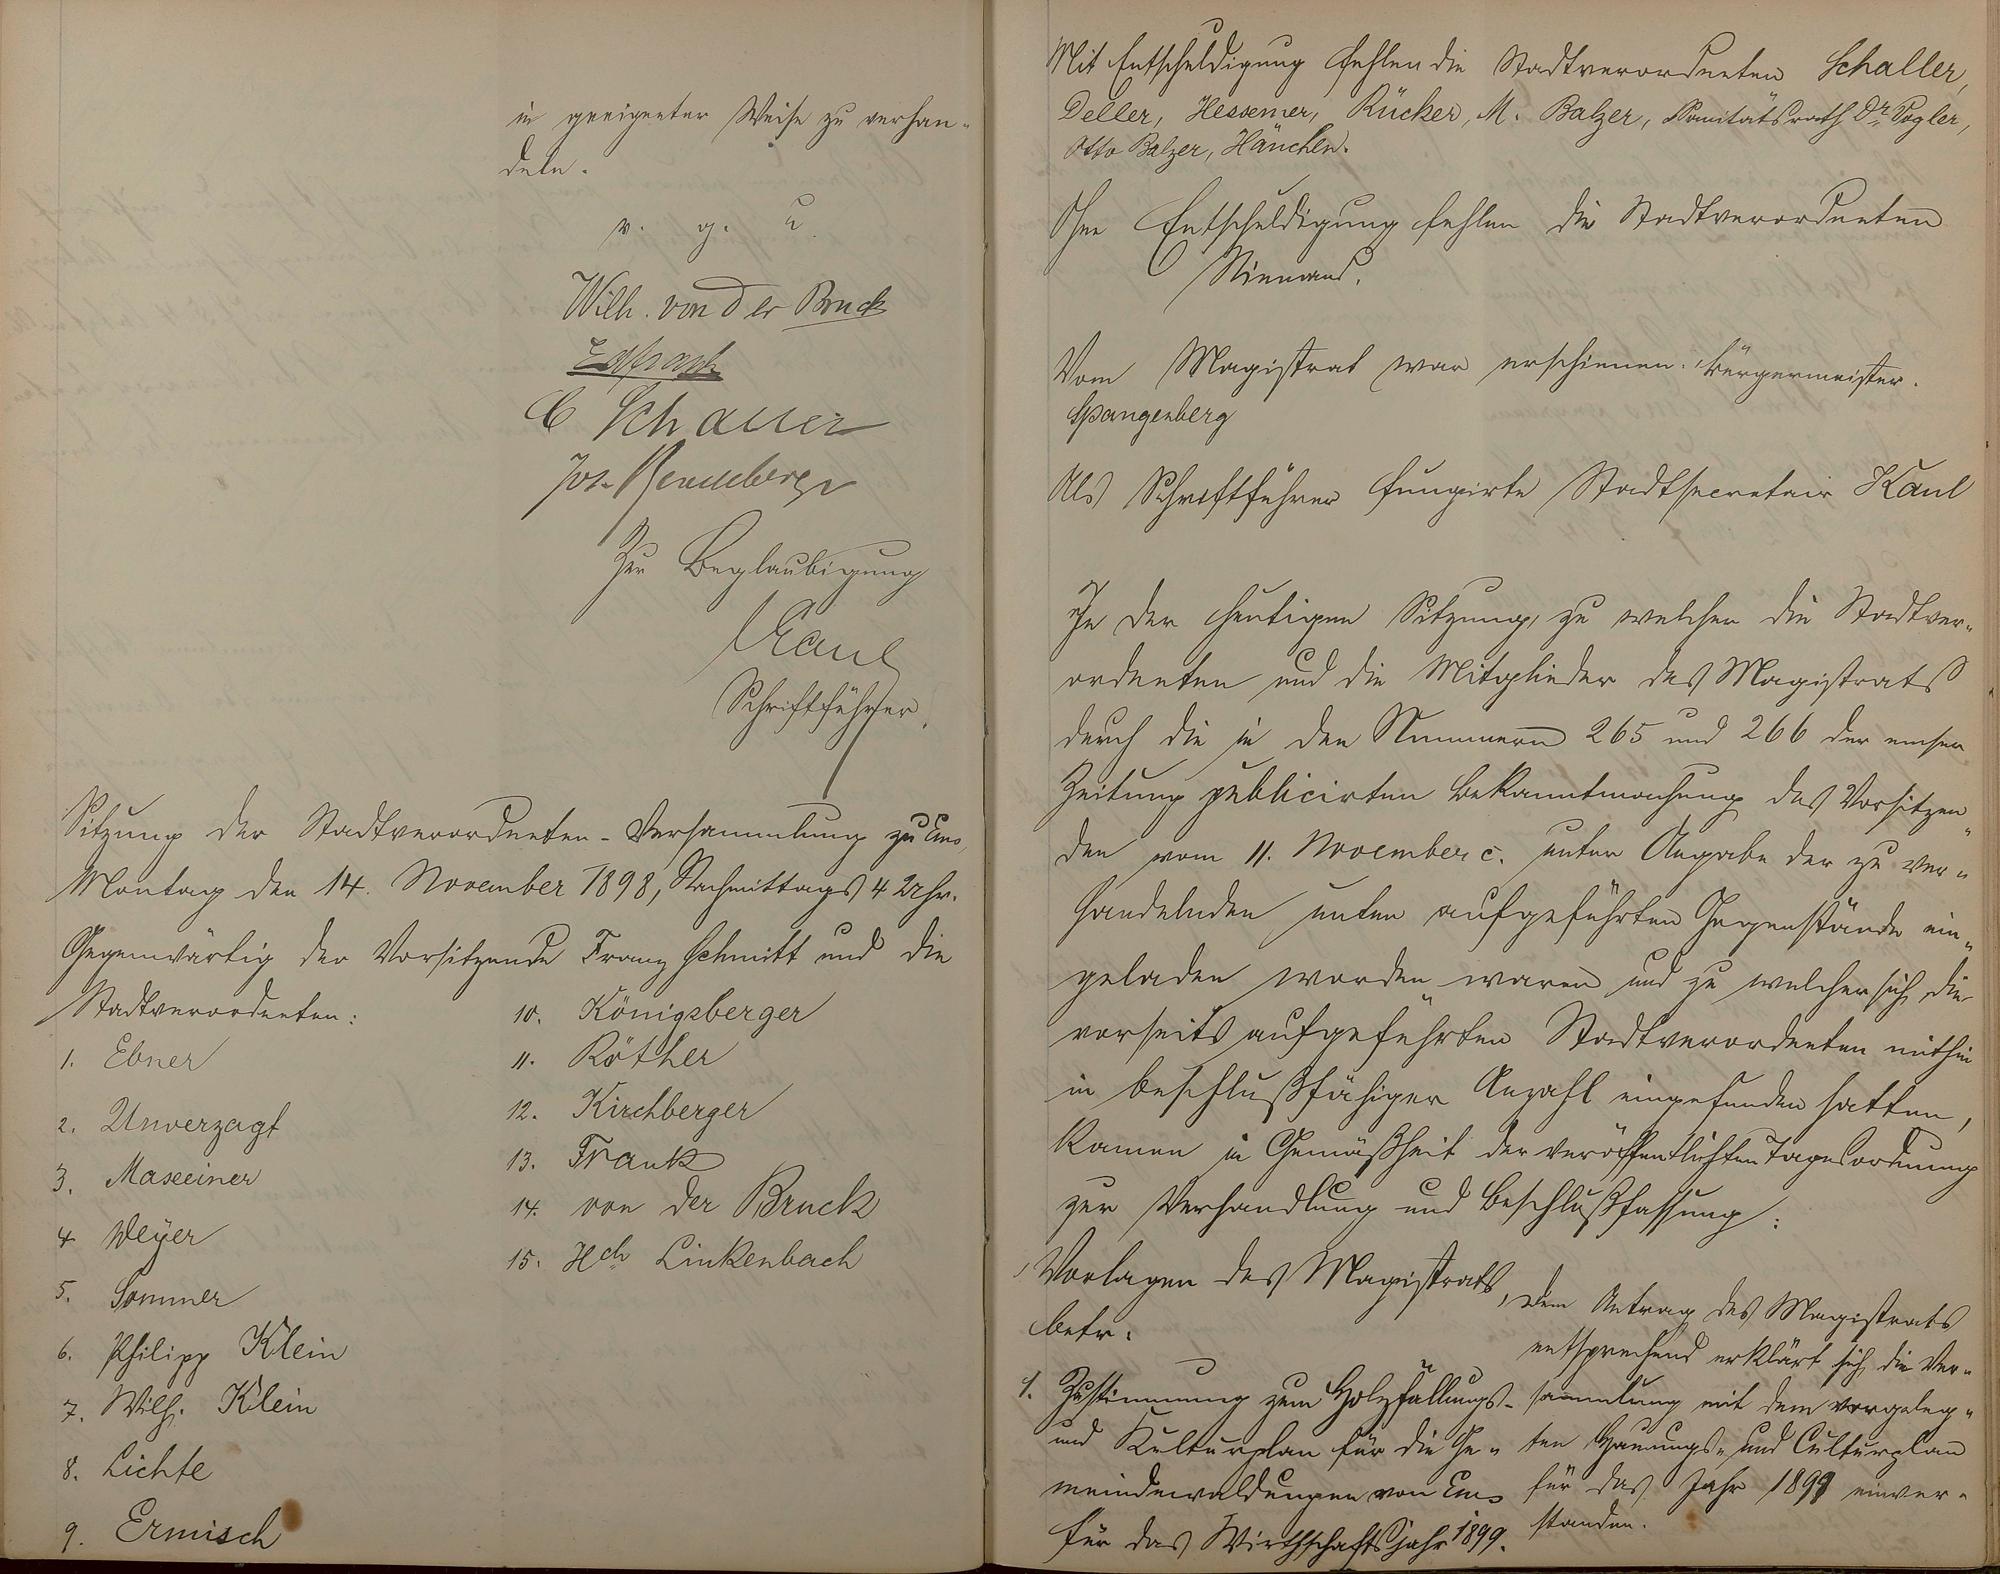 in geeigneter Weise zu verhan-
deln.
v. g. u.
Wilh. von der Bruck
C Schaller
Jos.
Zur Beglaubigung
Kaul
Schriftführer.
Sitzung der Stadtverordneten-Versammlung zu Ems,
Montag den 14. November 1898, Nachmittags 4 Uhr.
Gegenwärtig der Vorsitzende Franz Schmitt und die
Stadtverordneten:
1. Ebner
2. Unverzagt
3. Maxeiner
4 Weyer
5. Sommer
6. Philipp Klein
7. Wilh. Klein
8. Lichte
9. Ermisch
10. Königsberger
11. Röther
12. Kirchberger
13. Frank
14. von der Bruck
15. Hch Linkenbach
Mit Entschuldigung fehlen die Stadtverordneten Schaller,
Deller, Hessemer, Rücker, M. Balzer, Sanitätsrath Dr. Vogler,
Otto Balzer, Hänchen.
Ohne Entschuldigung fehlen die Stadtverordneten
Niemand.
Vom Magistrat war erschienen: Bürgermeister
Spangenberg
Als Schriftführer fungirte Stadtsecretair Kaul
In der heutigen Sitzung, zu welcher die Stadtver-
ordneten und die Mitglieder des Magistrats
durch die in den Nummern 265 und 266 der emser
Zeitung publicirten Bekanntmachung des Vorsitzen-
den vom 11. November c. unter Angabe der zu ver-
handelnden unten aufgeführten Gegenstände ein-
geladen worden waren und zu welcher sich die
vorseits aufgeführten Stadtverordneten mithin
in beschlußfähiger Anzahl eingefunden hatten,
kamen in Gemäßheit der veröffentlichten Tagesordnung
zur Verhandlung und Beschlußfassung:
Vorlagen des Magistrats,
betr.
1. Zustimmung zum Holzfällungs-
und Kulturplan für die Ge-
meindewaldungen von Ems
für das Wirthschaftsjahr 1899.
Dem Antrag des Magistrats
entsprechend erklärt sich die Ver-
sammlung mit dem vorgeleg-
ten Hauungs- und Culturplan
für das Jahr 1899 einver-
standen.